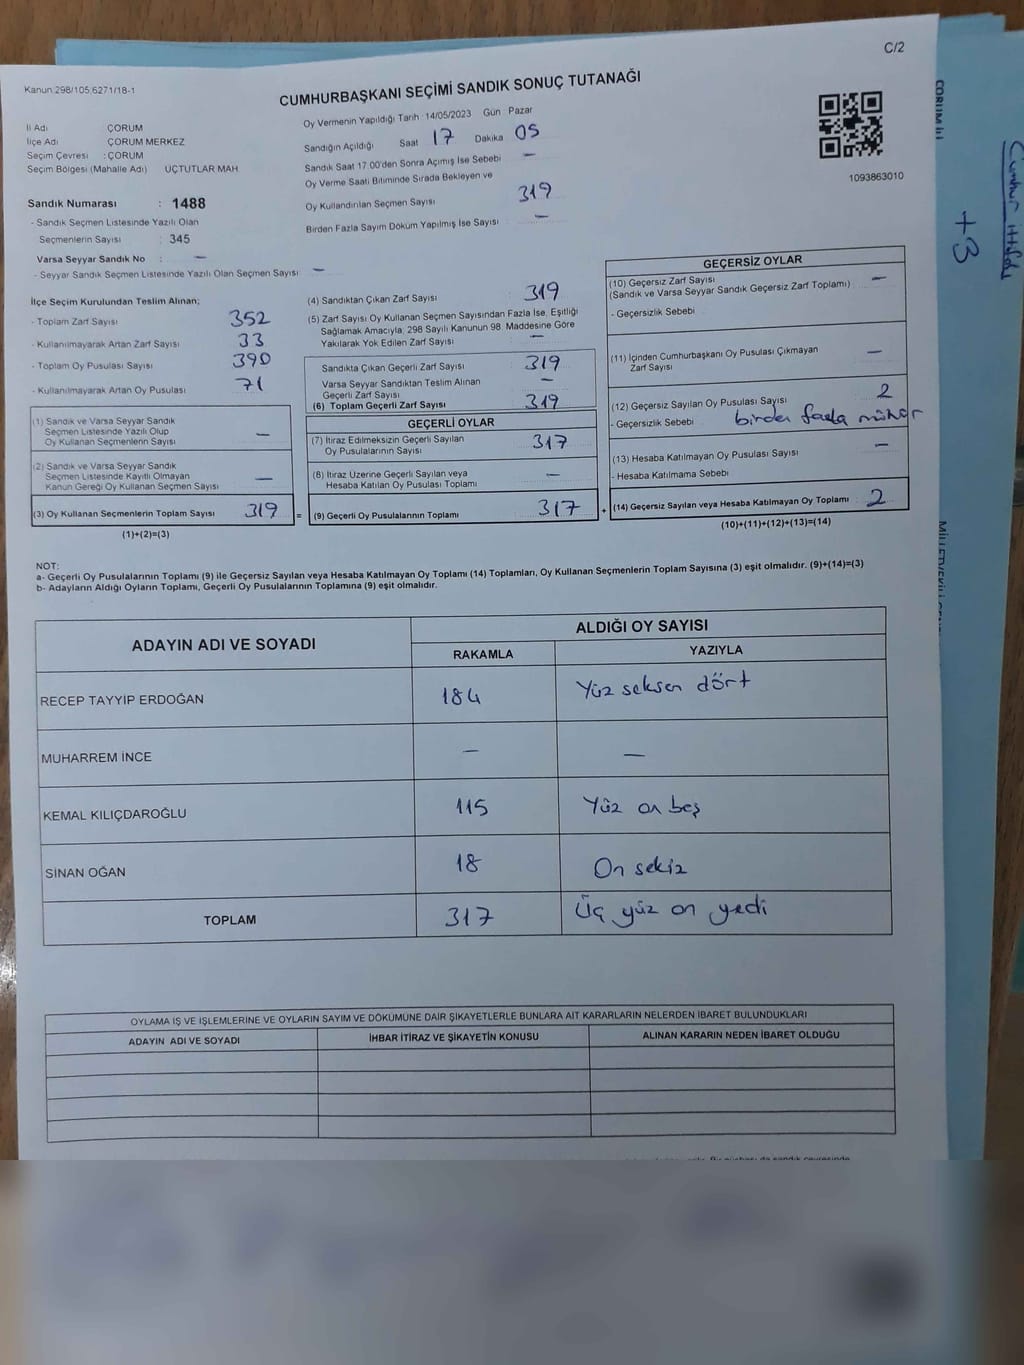 C/2
Kanun 298/105,6271/18-1
CUMHURBAŞKANI SEÇİMİ SANDIK SONUÇ TUTANAĞI
İl Adı ÇORUM
İlçe Adı ÇORUM MERKEZ
Seçim Çevresi : ÇORUM
Seçim Bölgesi (Mahalle Adı) ÜÇTUTLAR MAH.
Sandık Numarası : 1488
- Sandık Seçmen Listesinde Yazılı Olan
Seçmenlerin Sayısı : 345
Varsa Seyyar Sandık No : —
- Seyyar Sandık Seçmen Listesinde Yazılı Olan Seçmen Sayısı : —
Oy Vermenin Yapıldığı Tarih : 14/05/2023 Gün Pazar
Sandığın Açıldığı Saat 17 Dakika 05
Sandık Saat 17.00'den Sonra Açımış İse Sebebi —
Oy Verme Saati Bitiminde Sırada Bekleyen ve
Oy Kullandırılan Seçmen Sayısı 319
Birden Fazla Sayım Döküm Yapılmış İse Sayısı —
1093863010
İlçe Seçim Kurulundan Teslim Alınan;
- Toplam Zarf Sayısı 352
- Kullanılmayarak Artan Zarf Sayısı 33
- Toplam Oy Pusulası Sayısı 390
- Kullanılmayarak Artan Oy Pusulası 71
(1) Sandık ve Varsa Seyyar Sandık
Seçmen Listesinde Yazılı Olup
Oy Kullanan Seçmenlerin Sayısı —
(2) Sandık ve Varsa Seyyar Sandık
Seçmen Listesinde Kayıtlı Olmayan
Kanun Gereği Oy Kullanan Seçmen Sayısı —
(3) Oy Kullanan Seçmenlerin Toplam Sayısı 319 =
(1)+(2)=(3)
(4) Sandıktan Çıkan Zarf Sayısı 319
(5) Zarf Sayısı Oy Kullanan Seçmen Sayısından Fazla İse, Eşitliği
Sağlamak Amacıyla, 298 Sayılı Kanunun 98. Maddesine Göre
Yakılarak Yok Edilen Zarf Sayısı —
Sandıkta Çıkan Geçerli Zarf Sayısı 319
Varsa Seyyar Sandıktan Teslim Alınan
Geçerli Zarf Sayısı —
(6) Toplam Geçerli Zarf Sayısı 319
GEÇERLİ OYLAR
(7) İtiraz Edilmeksizin Geçerli Sayılan
Oy Pusulalarının Sayısı 317
(8) İtiraz Üzerine Geçerli Sayılan veya
Hesaba Katılan Oy Pusulası Toplamı —
(9) Geçerli Oy Pusulalarının Toplamı 317 +
GEÇERSİZ OYLAR
(10) Geçersiz Zarf Sayısı —
(Sandık ve Varsa Seyyar Sandık Geçersiz Zarf Toplamı)
- Geçersizlik Sebebi
(11) İçinden Cumhurbaşkanı Oy Pusulası Çıkmayan
Zarf Sayısı —
(12) Geçersiz Sayılan Oy Pusulası Sayısı 2
- Geçersizlik Sebebi birden fazla mühür
(13) Hesaba Katılmayan Oy Pusulası Sayısı —
- Hesaba Katılmama Sebebi
(14) Geçersiz Sayılan veya Hesaba Katılmayan Oy Toplamı 2
(10)+(11)+(12)+(13)=(14)
NOT:
a- Geçerli Oy Pusulalarının Toplamı (9) ile Geçersiz Sayılan veya Hesaba Katılmayan Oy Toplamı (14) Toplamları, Oy Kullanan Seçmenlerin Toplam Sayısına (3) eşit olmalıdır. (9)+(14)=(3)
b- Adayların Aldığı Oyların Toplamı, Geçerli Oy Pusulalarının Toplamına (9) eşit olmalıdır.
ADAYIN ADI VE SOYADI ALDIĞI OY SAYISI
RAKAMLA YAZIYLA
RECEP TAYYİP ERDOĞAN 184 Yüz seksen dört
MUHARREM İNCE — —
KEMAL KILIÇDAROĞLU 115 Yüz on beş
SİNAN OĞAN 18 On sekiz
TOPLAM 317 Üç yüz on yedi
OYLAMA İŞ VE İŞLEMLERİNE VE OYLARIN SAYIM VE DÖKÜMÜNE DAİR ŞİKAYETLERLE BUNLARA AİT KARARLARIN NELERDEN İBARET BULUNDUKLARI
ADAYIN ADI VE SOYADI İHBAR İTİRAZ VE ŞİKAYETİN KONUSU ALINAN KARARIN NEDEN İBARET OLDUĞU
ÇORUM İLİ
+3
Cumhur ittifakı